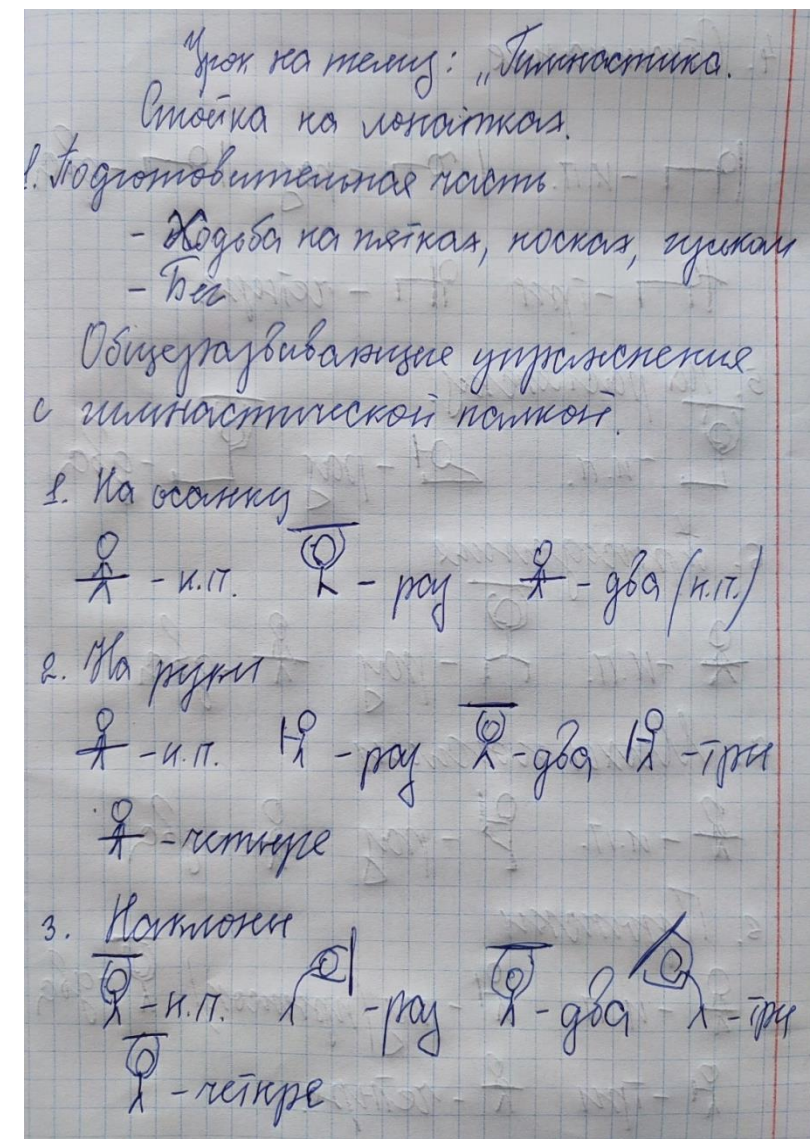 Урок на тему: „Гимнастика.
Стойка на лопатках.
1. Подготовительная часть
- Ходьба на пятках, носках, гуськом
- Бег
Общеразвивающие упражнения
с гимнастической палкой.
1. На осанку
- и.п. - раз - два (и.п.)
2. На руки
- и.п. - раз - два - три
- четыре
3. Наклоны
- и.п. - раз - два - три
- четкре